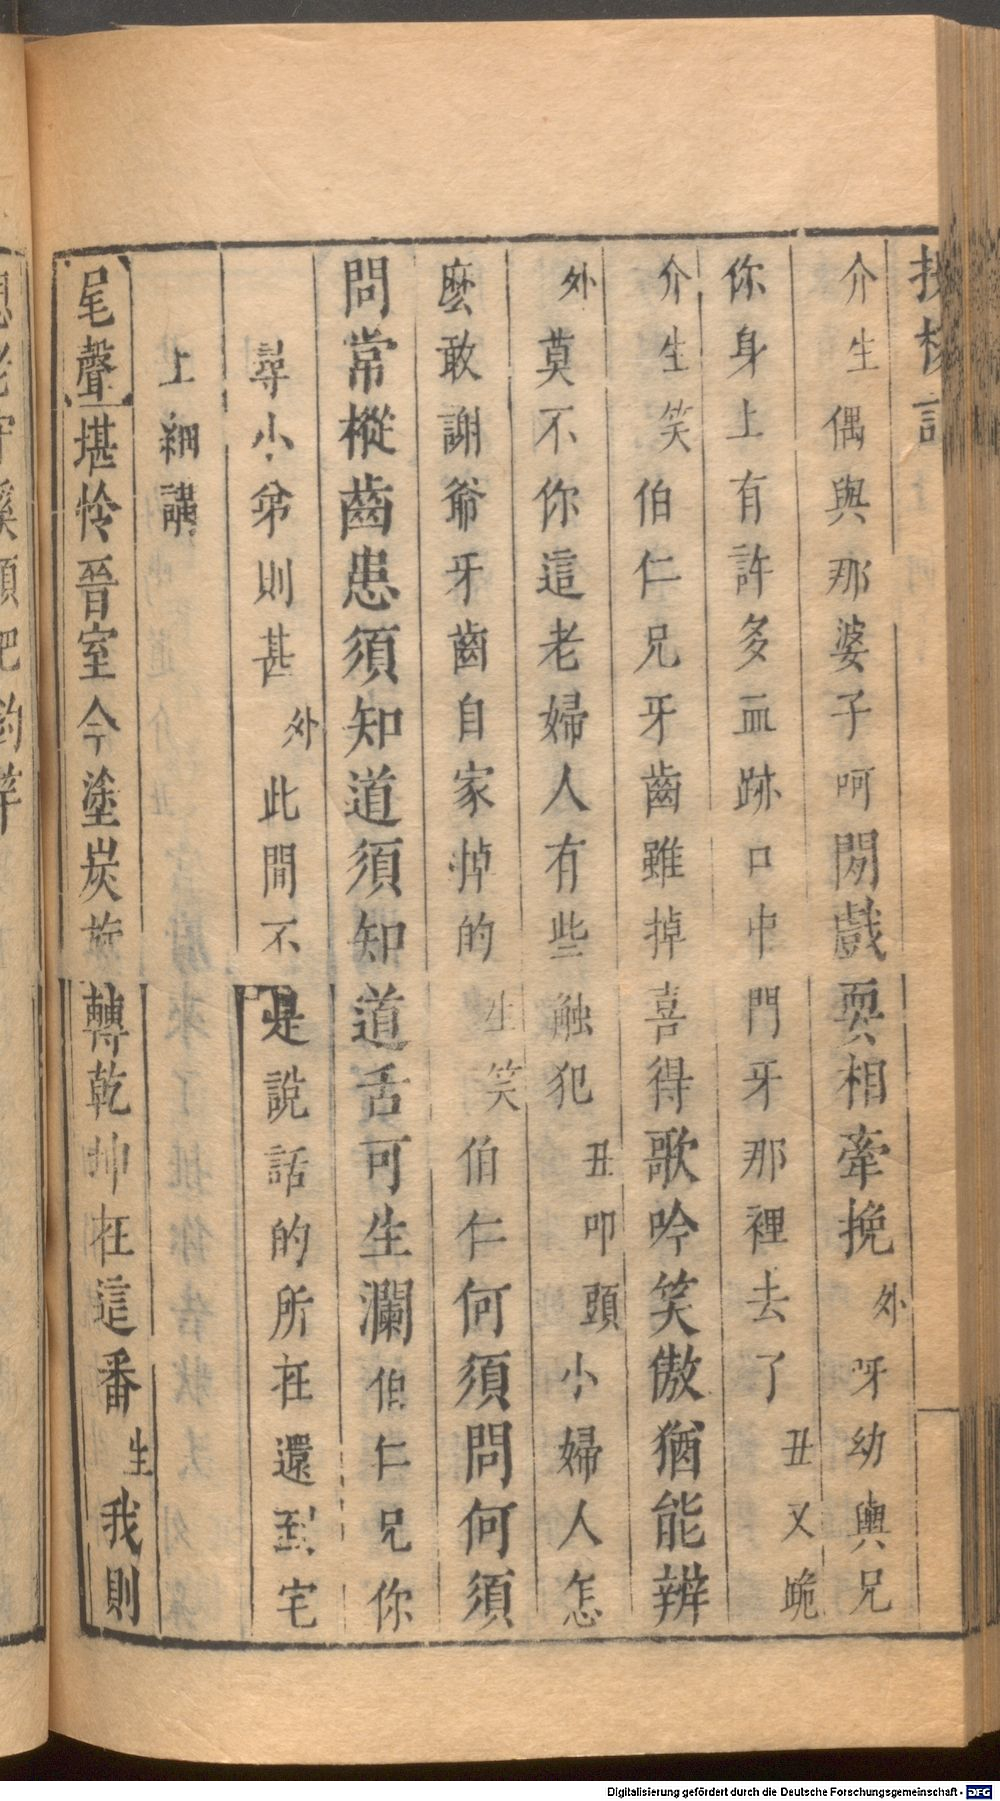 投梭記
介生偶與那婆子呵閑戲耍相牽挽外呀幼輿兄
你身上有許多血跡口中門牙那裡去了丑又跪
介生笑伯仁兄牙齒雖掉喜得歌吟笑傲猶能辨
外莫不你這老婦人有些触犯丑叩頭小婦人怎
麽敢謝爺牙齒自家掉的生笑伯仁何須問何須
問常樅齒患須知道須知道舌可生瀾伯仁兄你
尋小弟則甚外此間不是說話的所在還到宅
上細講
尾聲堪怜晉室今塗炭旋轉乾坤在這番生我則
Digitalisierung gefördert durch die Deutsche Forschungsgemeinschaft - DFG